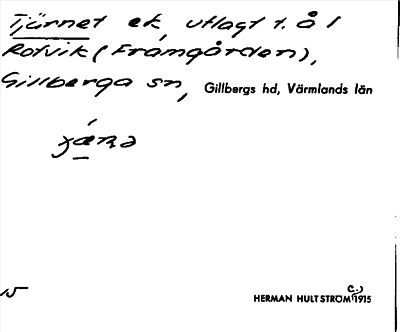 Tjärnet ek, utlagt t. å 1
Rotvik (Framgården),
Gillberga sn, Gillbergs hd, Värmlands län
15
HERMAN HULTSTRÖM (c.) 1915